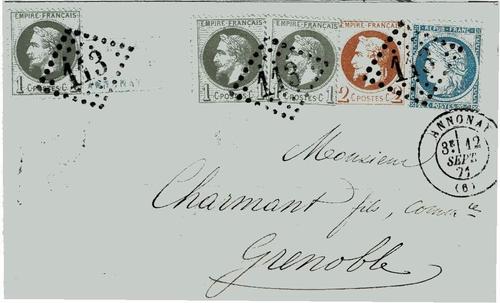 EMPIRE FRANÇAIS EMPIRE FRANÇAIS EMPIRE FRANÇAIS EMPIRE FRANÇAIS REPUB. FRANC.
113 113
1 C POSTES C 1 C POSTES C POSTES C 1 2 C POSTES C 2
ANNONAY
3E 12
SEPT.
71
(6)
Monsieur
Charmant fils, comm ce
Grenoble